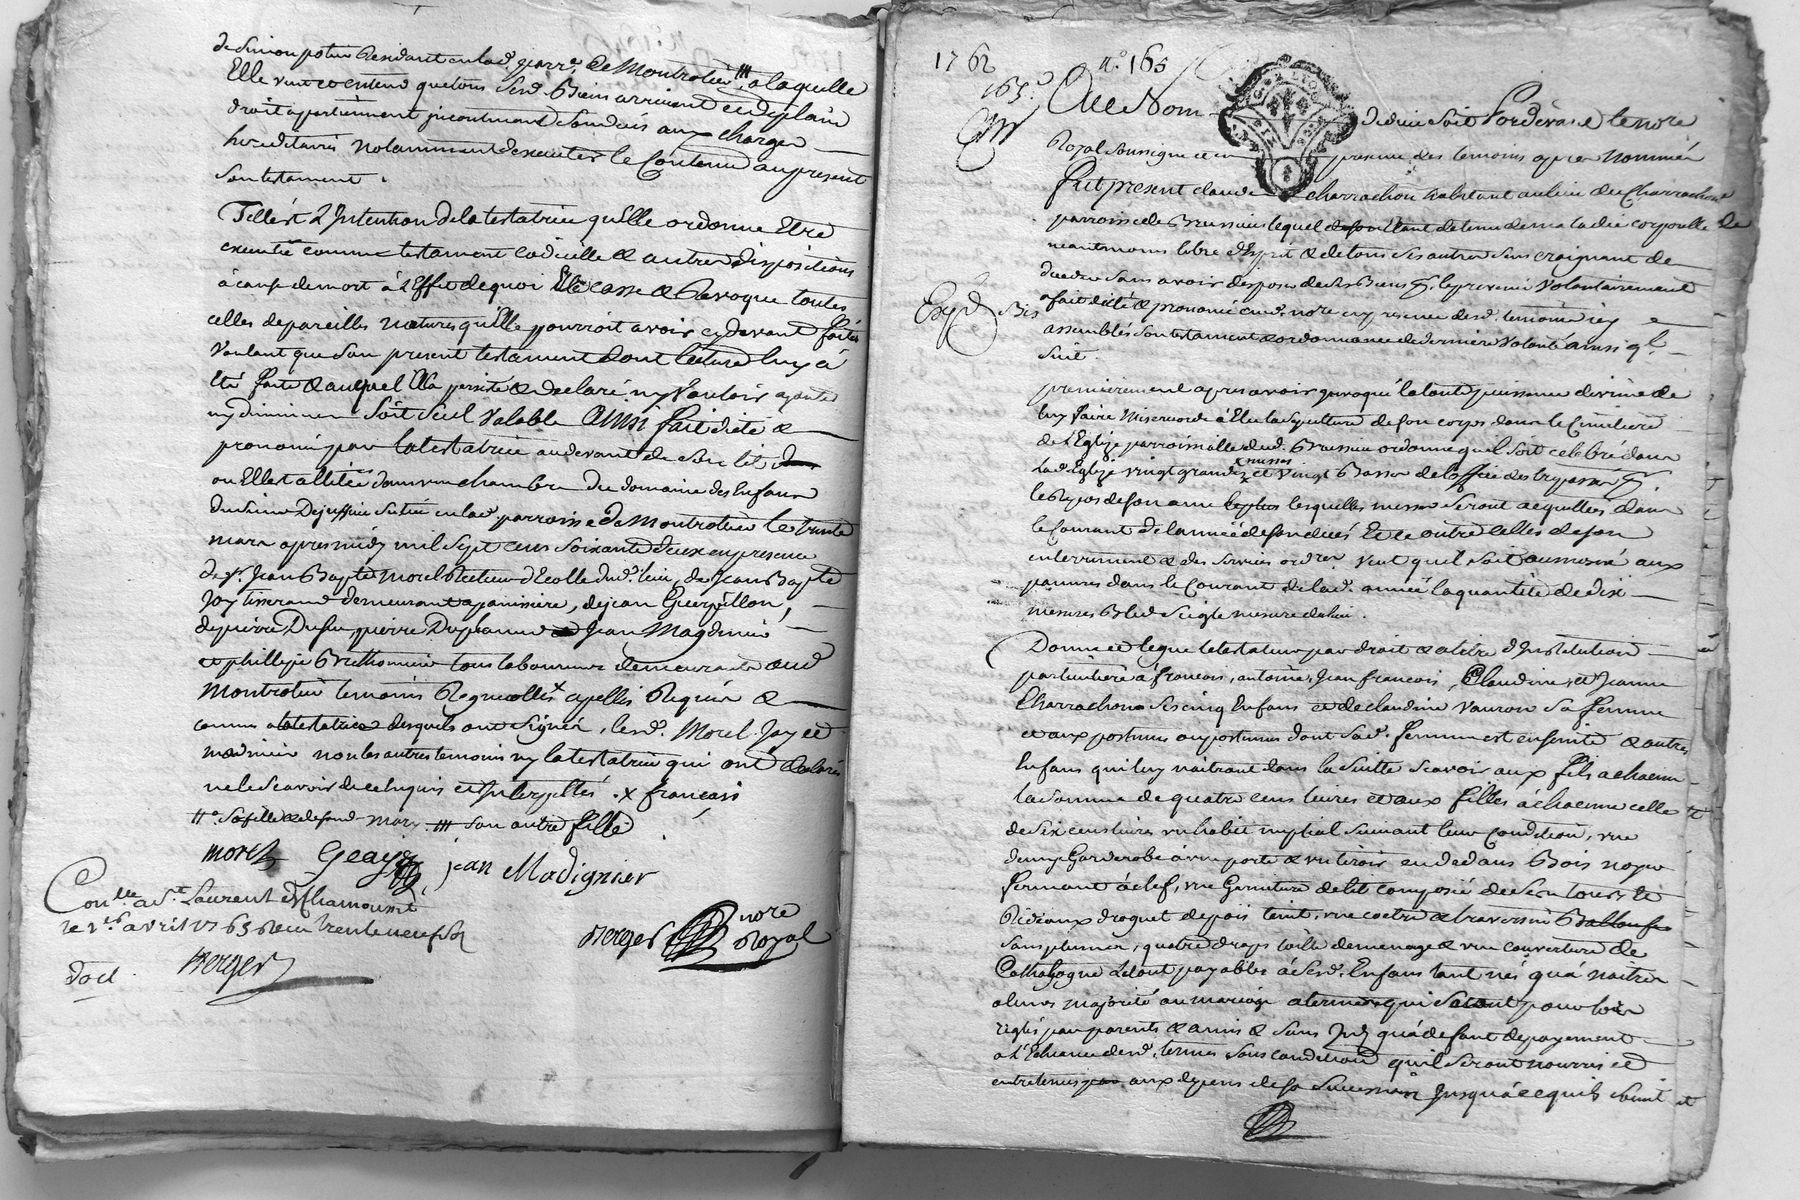 de Simon potier Residant en lad. parr.e de Montrotier /// a laquelle
Elle veut et entend que tous sesd. Biens arrivent et de plain
droit appartiennent incontinent son decés aux charges
hereditaires notamment d'executer le Contenu au present
son testament.
Telle est L'Intention de la testatrice qu'Elle ordonne Etre
executée comme testament codicille & autres dispositions
à cause de mort à L'Effet de quoi Elle casse & Revoque toutes
celles de pareilles natures qu'Elle pourroit avoir cy devant faites
Voulant que son present testament dont lecture luy à
Eté faite & auquel Ella persisté & declaré ny Vouloir ajouter
ny diminuer Soit Seul Valable Ainsi fait dicté &
prononcé par la testatrice au devant de son lit
ou Elle est allitée dans une chambre du domaine des Enfans
du Sieur Dejussieu Scitué en lad. parroisse de Montrotier le trente
mars apres midy mil Sept cens soixante deux en presence
de Sr. Jean Baptte Morel Recteur d'Ecolle dud. lieu, de Jean Baptte
Jay tisserand demeurant a panissiere, de jean Guerpillon,
de pierre Dufeu, pierre Duplannd Jean Magdinier
et phillipe Brethonnier tous laboureurs demeurants aud.
Montrotier temoins Regnicolles x apellés Requis &
connus a la testatrice desquels ont Signés, lesd. Morel Jay et
madinier non les autres temoins ny la testatrice qui ont declarés
ne le Scavoir de ce Enquis et Interpellés . x français
11° sa fille & de defunt Marx /// son autre fille
morel Geay jean Madignier
Con.lle a St. Laurent de Chamousset
le 1er avril 1763 Recu trente neuf s.
Berger nore Royal
dod. Berger
1762 n.° 165
165.e Au Nom
de dieu Soit Pardevant le nore
Royal Soussigné et en presence des temoins apres nommés
fut present claude charrachon habitant au lieu du Charrachon
parroisse de Brussieu lequel detenu de maladie corporelle
neantmoins libre d'Esprit & de tous ses autres Sens craignant de
deceder Sans avoir disposé de ses Biens p. le prevenir Volontairement
Expd. Bis
a fait dicté & prononcé aud. nore en presence desd. temoins icy
assemblés Son testament & ordonnance de derniere Volonté ainsi q.l
Suit.
premierement apres avoir invoqué la toute puissance divine de
luy faire Misericorde à Elu la Sepulture de Son corps dans le Cimitiere
de L'Eglize parroissialle dud. Brussieu ordonne quel Soit celebré dans
lad. Eglize vingt grandes messes et vingt Basses de l'office des trepassés p.
le Repos de son ame lesquelles messes Seront acquittées dans
le Courant de l'année de son decés Et ce outre celles de son
enterrement & des Services ordres Veut quil Soit aumosné aux
pauvres dans le Courant de lad. année la quantité de dix
mesures Bled Seigle mesure dud. lieu.
Donne et legue le testateur par droit & a titre d'Institution
particuliere à francois, antoine, Jean francois, Claudine, et Jeanne
Charrachon Ses cinq Enfans et de claudine Vauron Sa femme
et aux postumes ou postumes dont Sad. femme est enseinte & autres
Enfans qui luy naitront dans la Suitte Scavoir aux fils a chacun
la Somme de quatre cens livres et aux filles à chacune celle
de Six cens livres un habit nuptial Suivant leur Condition, une
demy Garderobe à une porte & un tiroir en dedans Bois noyer
fermant à clef, une Garniture de lit composée de Son tour de
Rideaux droguet de pois teint, une coetre & traversin Balloufe
Sans plumes, quatre draps toille de menage & une couverture de
Cathalogne Le tout payables à Sesd. Enfans tant nés qu'a naitre
a leurs majorité ou mariage a termes qui Seront pour lors
reglés par parents & amis & Sans Int. qu'à defaut de payement
a L'Echeance desd. termes Sous condition quil Seront nourris et
entretenus aux depens de Sa Succession Jusqu'à ce quils Soient